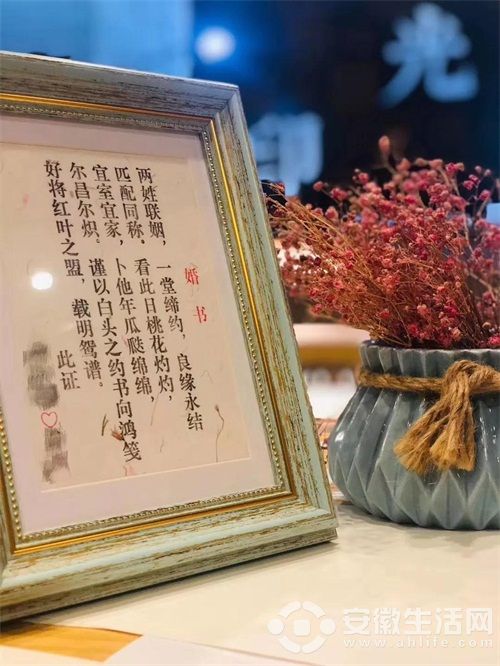 婚书
两姓联姻,一堂缔约,良缘永结
匹配同称。看此日桃花灼灼,
宜室宜家,卜他年瓜瓞绵绵,
尔昌尔炽。谨以白头之约书向鸿笺
好将红叶之盟,载明鸳谱。
此证
光
印
安徽生活网
www.ahlife.com